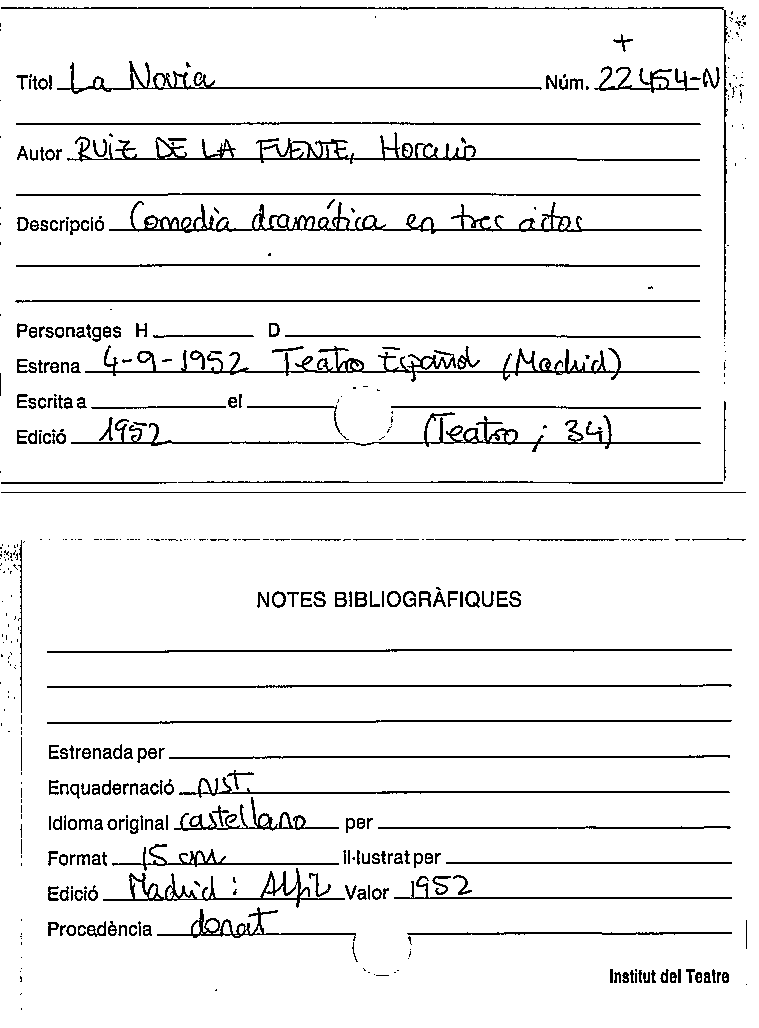 +
Títol La Novia Núm. 22454-N
Autor RUIZ DE LA FUENTE, Horacio
Descripció Comedia dramática en tres actos
Personatges H D
Estrena 4-9-1952 Teatro Español (Madrid)
Escrita a el
Edició 1952 (Teatro ; 34)
NOTES BIBLIOGRÀFIQUES
Estrenada per
Enquadernació rúst.
Idioma original castellano per
Format 15 cm il·lustrat per
Edició Madrid : Alfil Valor 1952
Procedència donat
Institut del Teatre